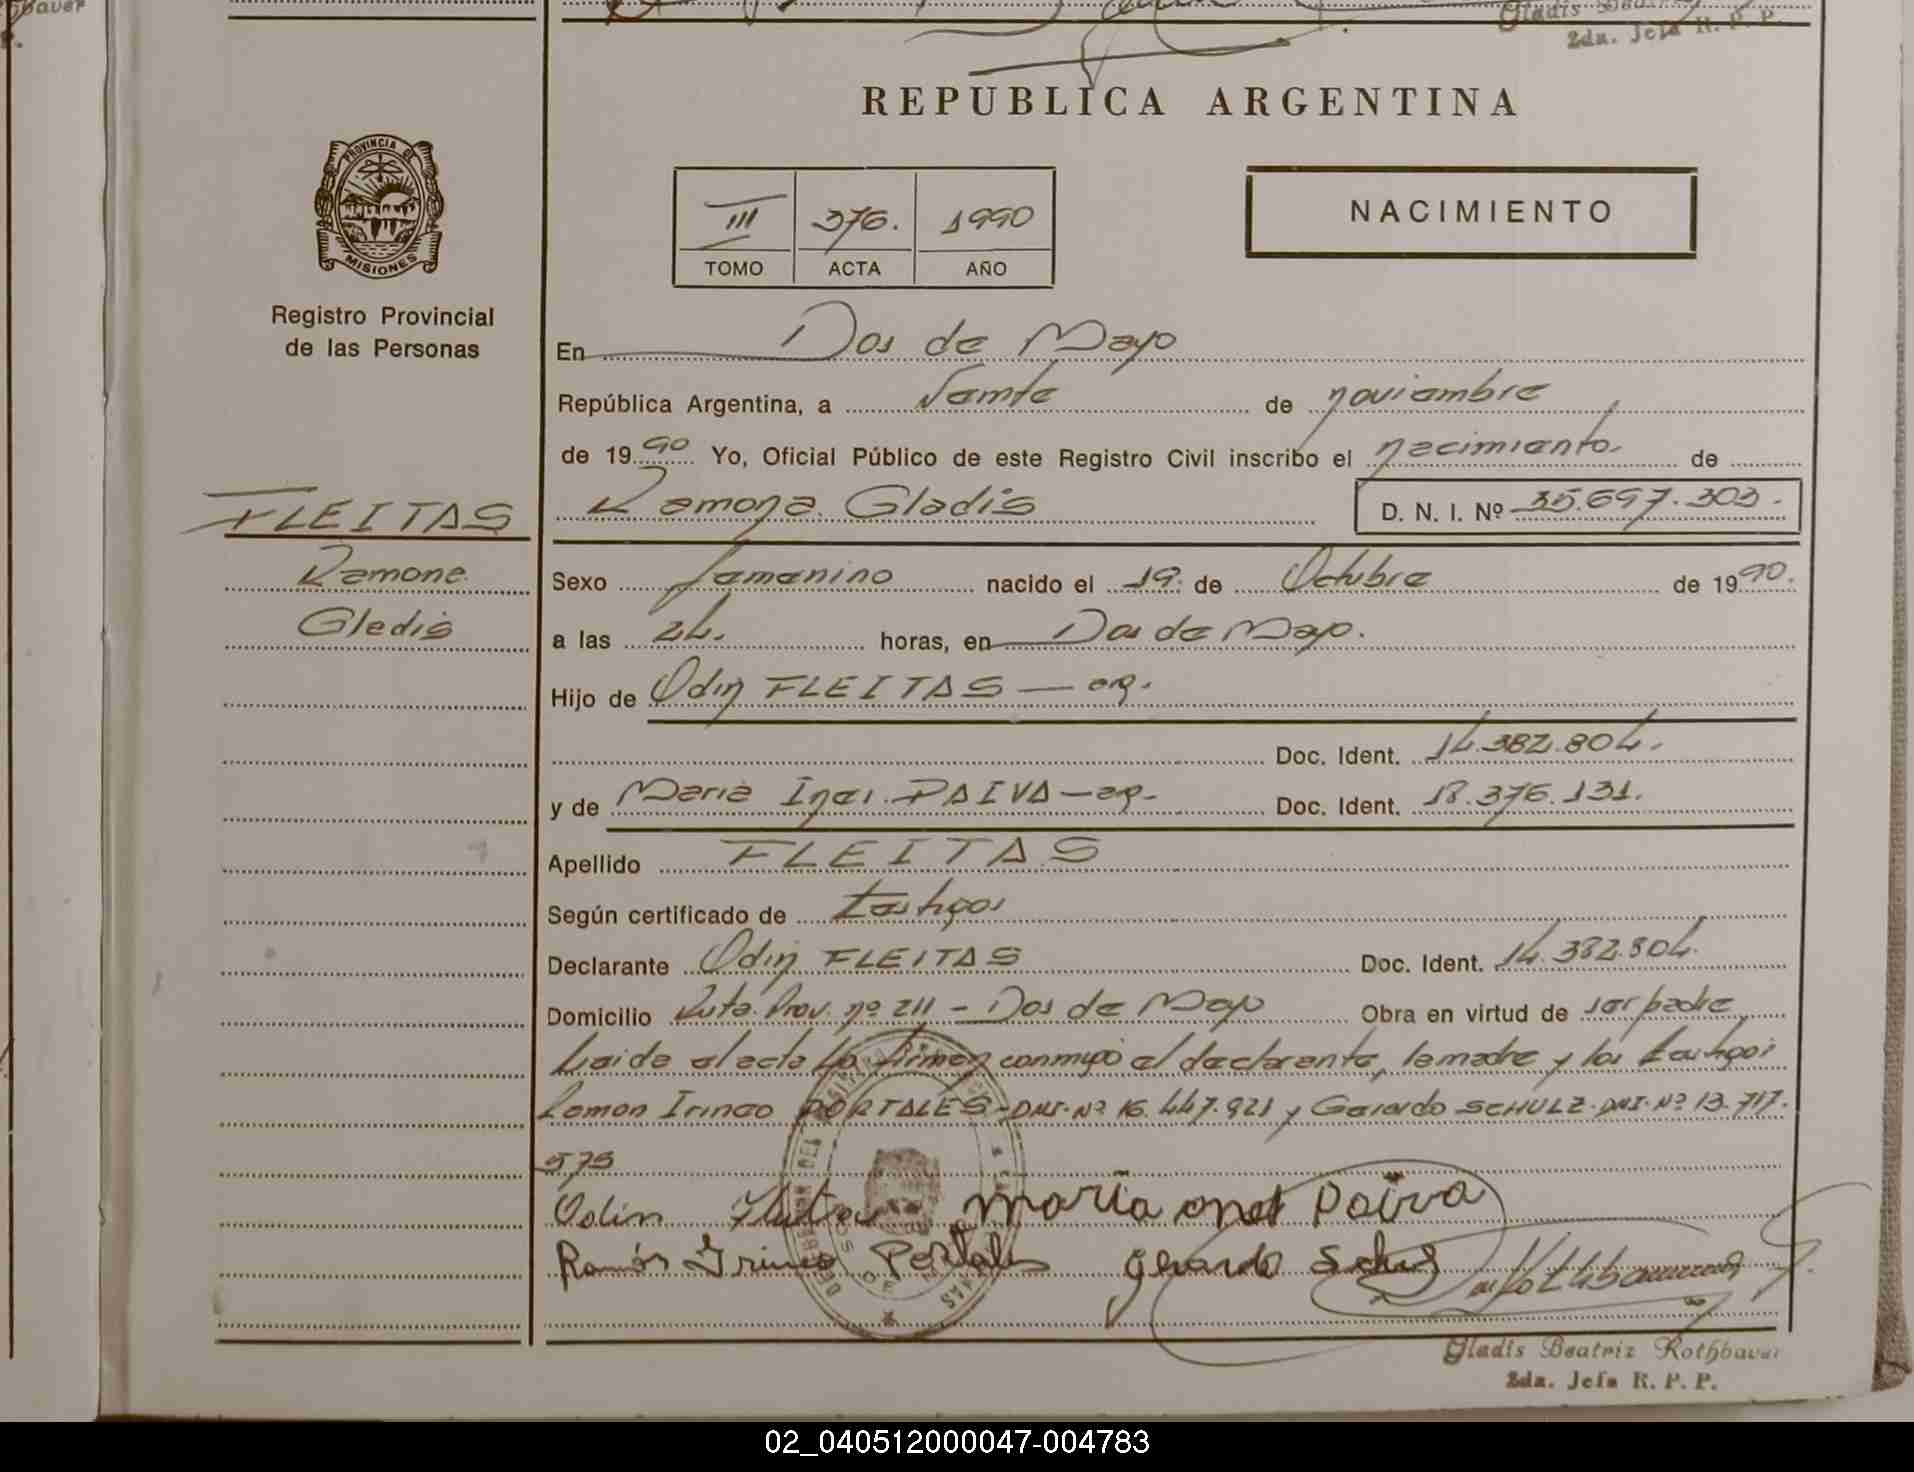 Gladis
2da. Jefa R. P. P.
REPUBLICA ARGENTINA
PROVINCIA DE
MISIONES
Registro Provincial
de las Personas
III 376. 1990
TOMO ACTA AÑO
NACIMIENTO
En Dos de Mayo
República Argentina, a Veinte de noviembre
de 1990 Yo, Oficial Público de este Registro Civil inscribo el nacimiento de
Ramona Gladis D. N. I. Nº 35.697.303.
FLEITAS
Ramona
Gladis
Sexo femenino nacido el 19. de Octubre de 1990.
a las 24. horas, en Dos de Mayo.
Hijo de Odin FLEITAS — arg.
Doc. Ident. 14.382.804.
y de Maria Ines. PAIVA — arg. Doc. Ident. 18.376.131.
Apellido FLEITAS
Según certificado de testigos
Declarante Odin FLEITAS Doc. Ident. 14.382.804.
Domicilio Ruta Prov. nº 211 - Dos de Mayo Obra en virtud de ser padre
Leida el acta la firman conmigo el declarante, la madre y los testigos
Ramon Irineo PORTALES - DNI. Nº 16.447.921 y Gerardo SCHULZ. DNI. Nº 13.717.
575
Odin Fleitas maria Paiva
Ramón Irineo Portales gerardo
Gladis Beatriz Rothbauer
2da. Jefa R. P. P.
02_040512000047-004783